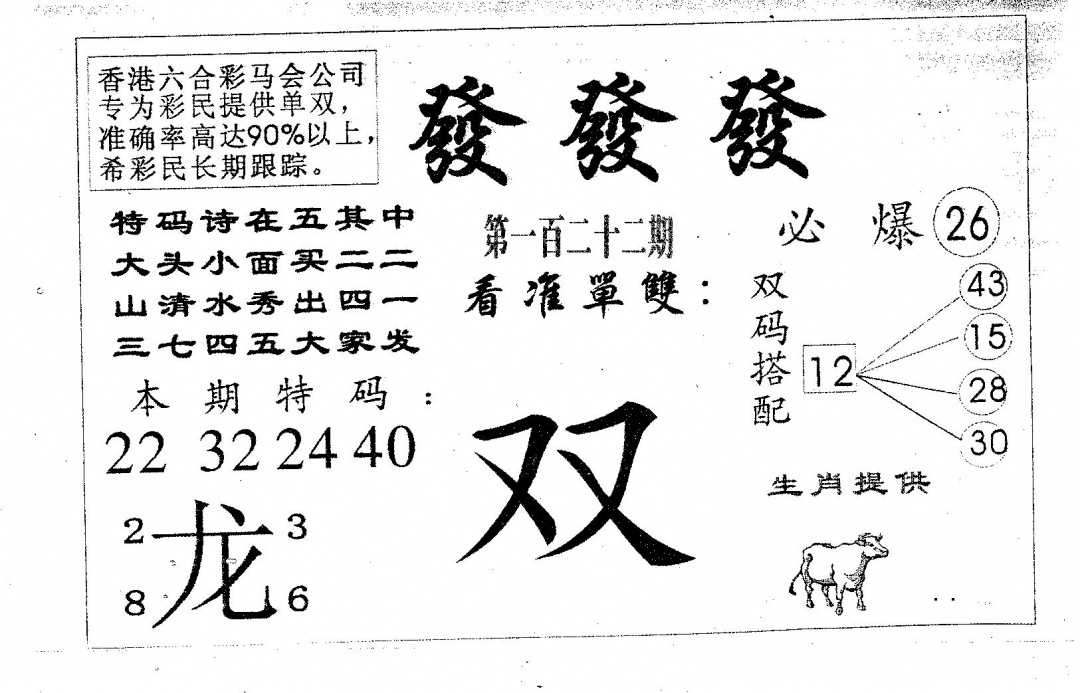 香港六合彩马会公司
专为彩民提供单双，
准确率高达90%以上，
希彩民长期跟踪。
發發發
特码诗在五其中
大头小面买二二
山清水秀出四一
三七四五大家发
本期特码：
22 32 24 40
2 龙 3
8 6
第一百二十二期
看准單雙：
双
必爆 26
双码搭配
12
43
15
28
30
生肖提供